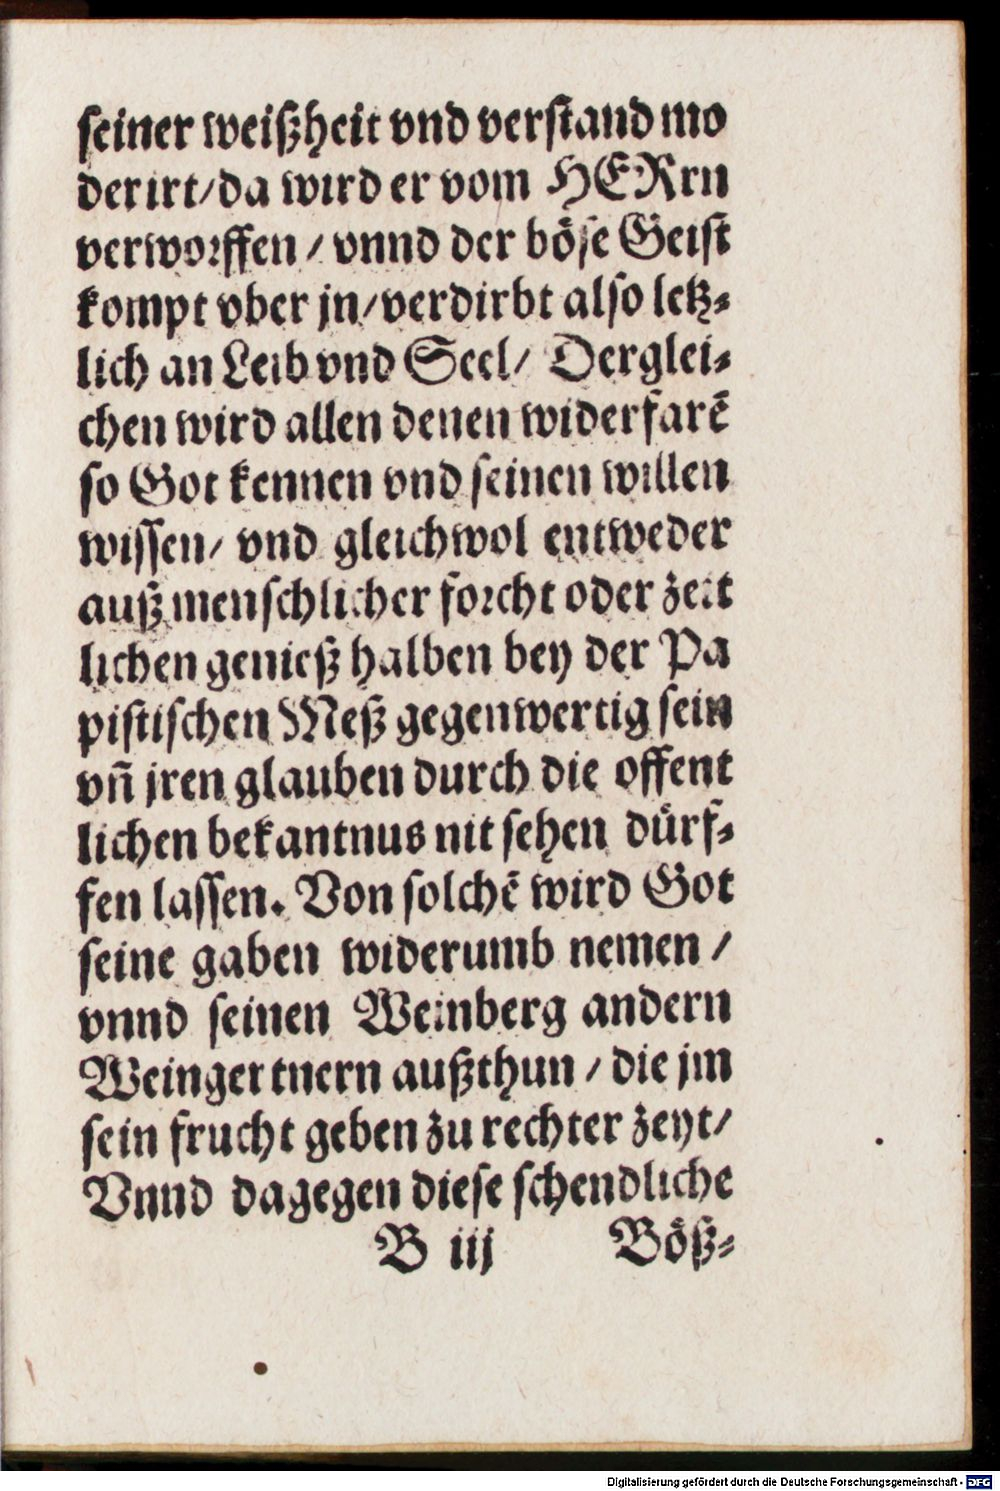 seiner weißheit vnd verstand mo
derirt/da wird er vom HERrn
verworffen / vnnd der böse Geist
kompt vber jn/verdirbt also letz⸗
lich an Leib vnd Seel/ Derglei⸗
chen wird allen denen widerfarē
so Got kennen vnd seinen willen
wissen/ vnd gleichwol entweder
auß menschlicher forcht oder zeit
lichen genieß halben bey der Pa
pistischen Meß gegenwertig sein
vñ jren glauben durch die offent
lichen bekantnus nit sehen dürf⸗
fen lassen. Von solchē wird Got
seine gaben widerumb nemen /
vnnd seinen Weinberg andern
Weingertnern außthun / die jm
sein frucht geben zu rechter zeyt/
Vnnd dagegen diese schendliche
B iij Böß⸗
Digitalisierung gefördert durch die Deutsche Forschungsgemeinschaft - DFG